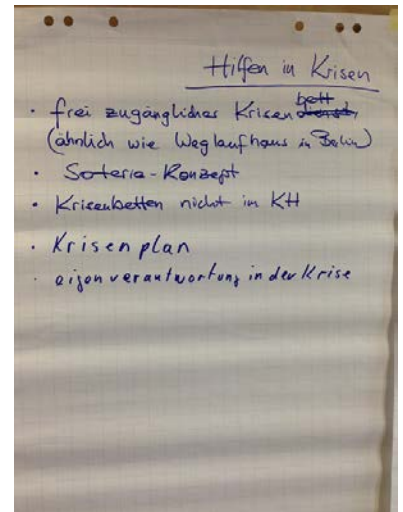 Hilfen in Krisen
· frei zugänglicher Krisenbett
(ähnlich wie Weglaufhaus in Berlin)
· Soteria-Konzept
· Krisenbetten nicht im KH
· Krisenplan
· eigenverantwortung in der Krise